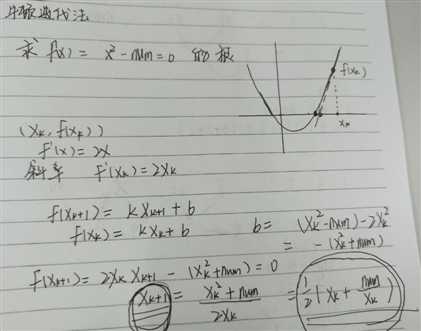 牛顿迭代法
求 f(x) = x² - num = 0 的根
f(xₖ)
xₖ
(xₖ, f(xₖ))
f'(x) = 2x
斜率 f'(xₖ) = 2xₖ
f(xₖ₊₁) = kxₖ₊₁ + b
f(xₖ) = kxₖ + b
b = (xₖ² - num) - 2xₖ²
= -(xₖ² + num)
f(xₖ₊₁) = 2xₖ xₖ₊₁ - (xₖ² + num) = 0
xₖ₊₁ = (xₖ² + num) / 2xₖ = 1/2 (xₖ + num/xₖ)